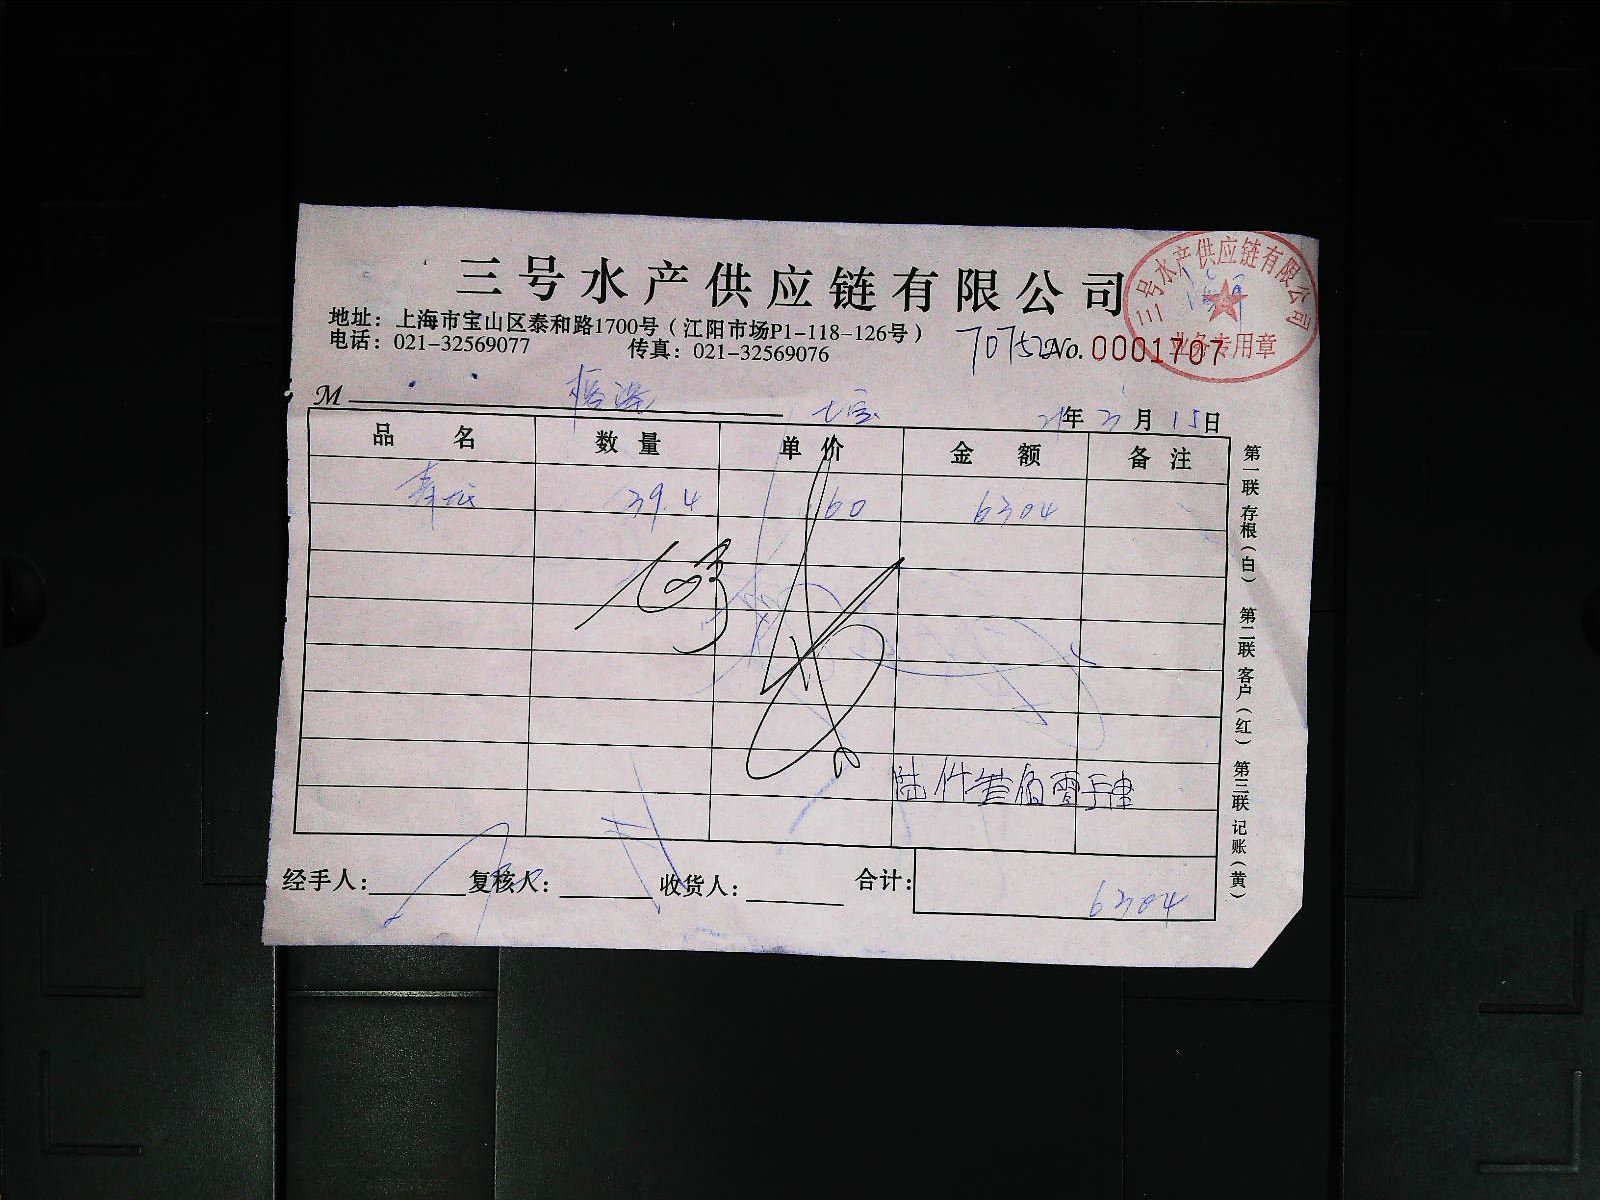 三号水产供应链有限公司
三号水产供应链有限公司
业务专用章
地址：上海市宝山区泰和路1700号（江阳市场P1-118-126号）
电话：021-32569077 传真：021-32569076
70752 No. 0001707
M 七宝 21年 3月 15日
品 名 数 量 单 价 金 额 备 注
39.4 160 6304
陆仟叁佰零肆
经手人： 复核人： 收货人： 合计： 6304
第一联 存根（白） 第二联 客户（红） 第三联 记账（黄）